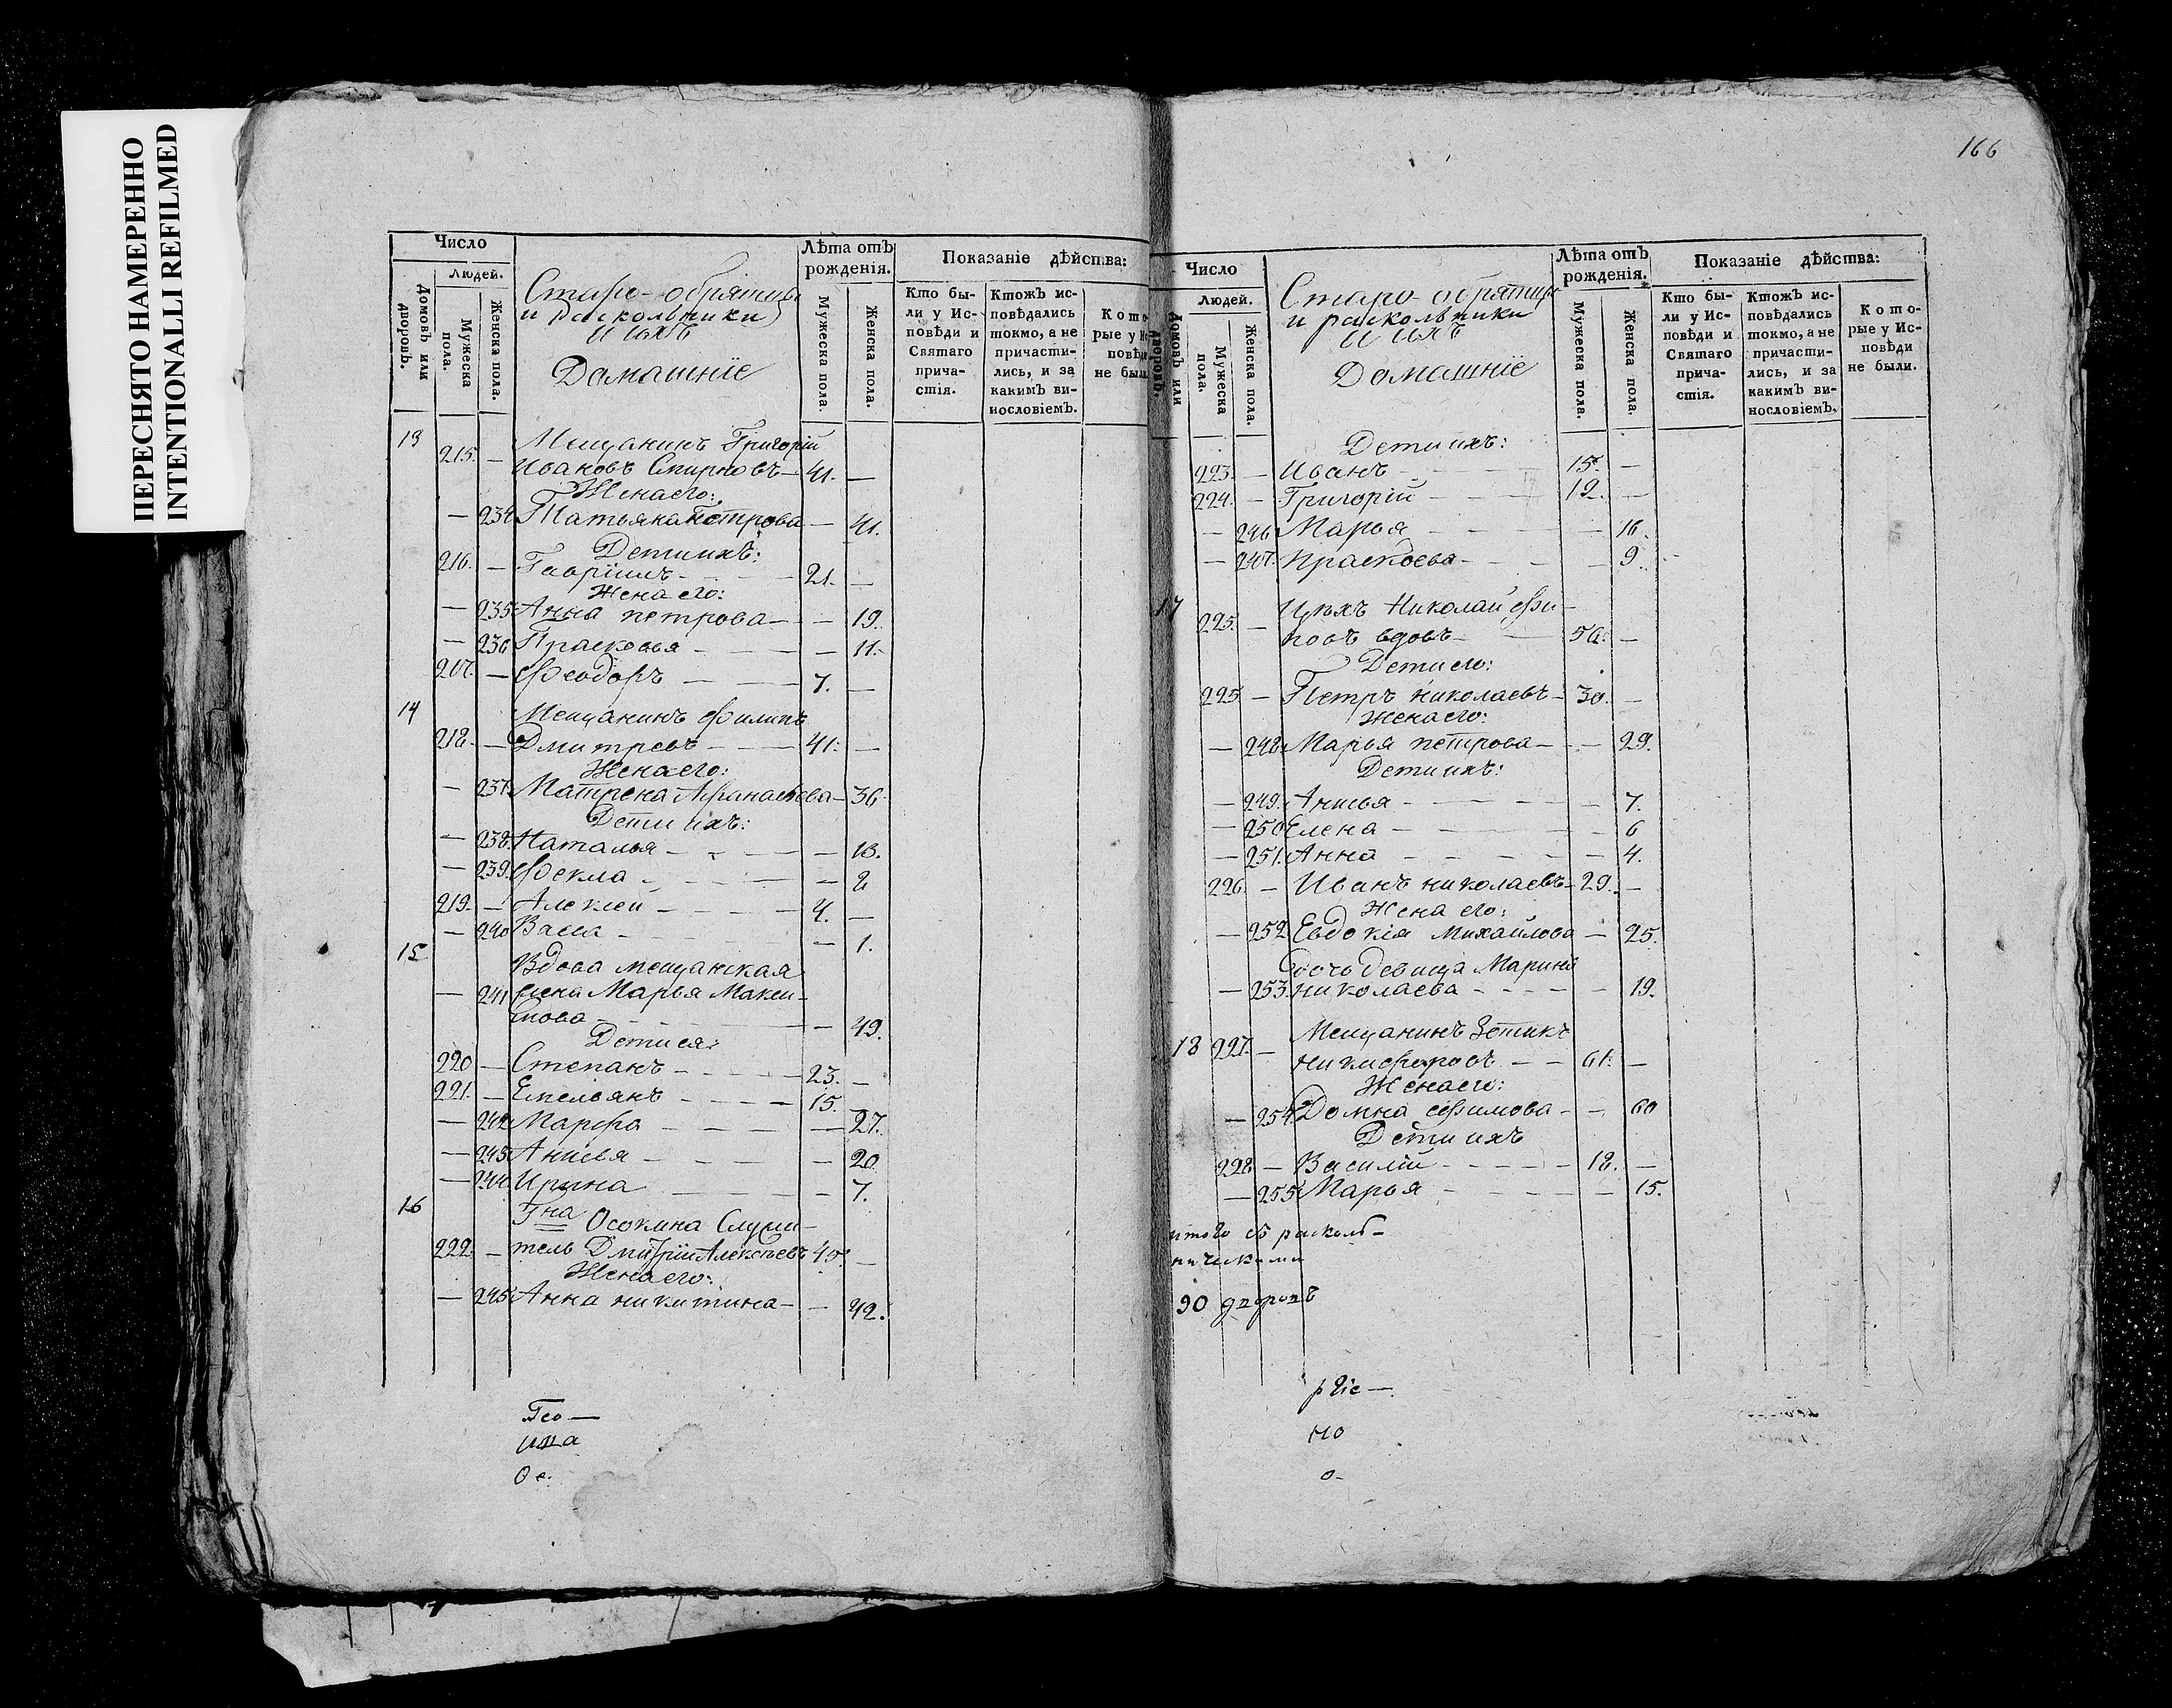 ПЕРЕСНЯТО НАМЕРЕННО
INTENTIONALLI REFILMED
Число
Людей.
Домовъ или дворовъ.
Мужеска пола.
Женска пола.
Старо-обрятцы
и раскольники
и ихъ
Домашніе
Лѣта отъ
рожденія.
Мужеска пола.
Женска пола.
Показаніе дѣйства:
Кто бы-
ли у Ис-
повѣди и
Святаго
прича-
стія.
Ктожъ ис-
повѣдались
токмо, а не
причасти-
лись, и за
какимъ ви-
нословіемъ.
Кото
рые у Ис
повѣди
не были
13 Мещанинъ Григорій
215. — Ивановъ Смирновъ — 41. —
Жена его:
— 234 Татьяна Петрова — 41.
Дети ихъ:
216. — Гавріилъ - - - 21. —
Жена его:
— 235 Анна петрова — — 19.
— 236 Прасковья - - - — 11.
217. — Феодоръ - - — 7. —
14 Мещанинъ Филипъ
218. — Дмитревъ - - — 41. —
Жена его:
— 237. Матрена Афанасьева — 36
Дети ихъ:
— 238. Наталья - - - — 13.
— 239. Фекла - - - — 2
219. — Алексеи - - - 4. —
— 240 Васса - - — 1.
15 Вдова мещанская
— 241 жена Марья Макси-
мова - - - — 49.
Дети ея:
220 — Степанъ - - - 23. —
221. — Емельянъ - - - 15. —
— 242 Марфа - - - — 27.
— 243 Анисья - - - — 20
— 244. Ирина - - - — 7.
16 Гна Осокина Служи-
222. — тель Дмитрій Алексѣевъ 45. —
Жена его:
— 245 Анна никитина — — 42.
Гео —
ина
166
Число
Людей.
Домовъ или дворовъ.
Мужеска пола.
Женска пола.
Старо-обрятцы
и раскольники
и ихъ
Домашніе
Лѣта отъ
рожденія.
Мужеска пола.
Женска пола.
Показаніе дѣйства:
Кто бы-
ли у Ис-
повѣди и
Святаго
прича-
стія.
Ктожъ ис-
повѣдались
токмо, а не
причасти-
лись, и за
какимъ ви-
нословіемъ.
Кото-
рые у Ис-
повѣди
не были.
Дети ихъ:
223. — Иванъ - - - 15. —
224. — Григорій - - - 12. —
— 246 Марья - - - — 16.
— 247. Прасковья - - - — 9.
17 Цѣхъ Николай Фи-
225. — повъ вдовъ — 50. —
Дети его:
225 — Петръ николаевъ — 30. —
Жена его:
— 248 Марья петрова — — 29.
Дети ихъ:
— 249. Анисья - - - — 7.
— 250 Елена - - - — 6
— 251. Анна - - - — 4.
226. — Иванъ николаевъ — 29. —
Жена его:
— 252. Евдокія Михайлова — 25.
дочь девица Марина
— 253. николаева - - - — 19.
Мещанинъ Зотикъ
18 227. — никифоровъ - - — 61. —
Жена его:
— 254. Домна Ефимова - — 60
Дети ихъ
228. — Василій - - - 18. —
— 255 Марья - - - — 15.
итого съ расколь-
ническими
90 дворовъ
но